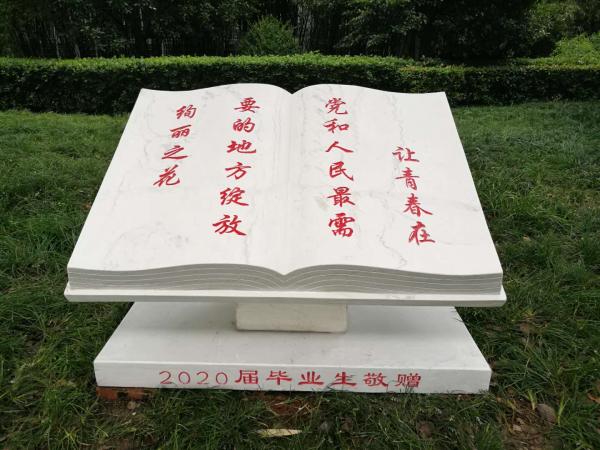 让青春在
党和人民最需
要的地方绽放
绚丽之花
2020届毕业生敬赠